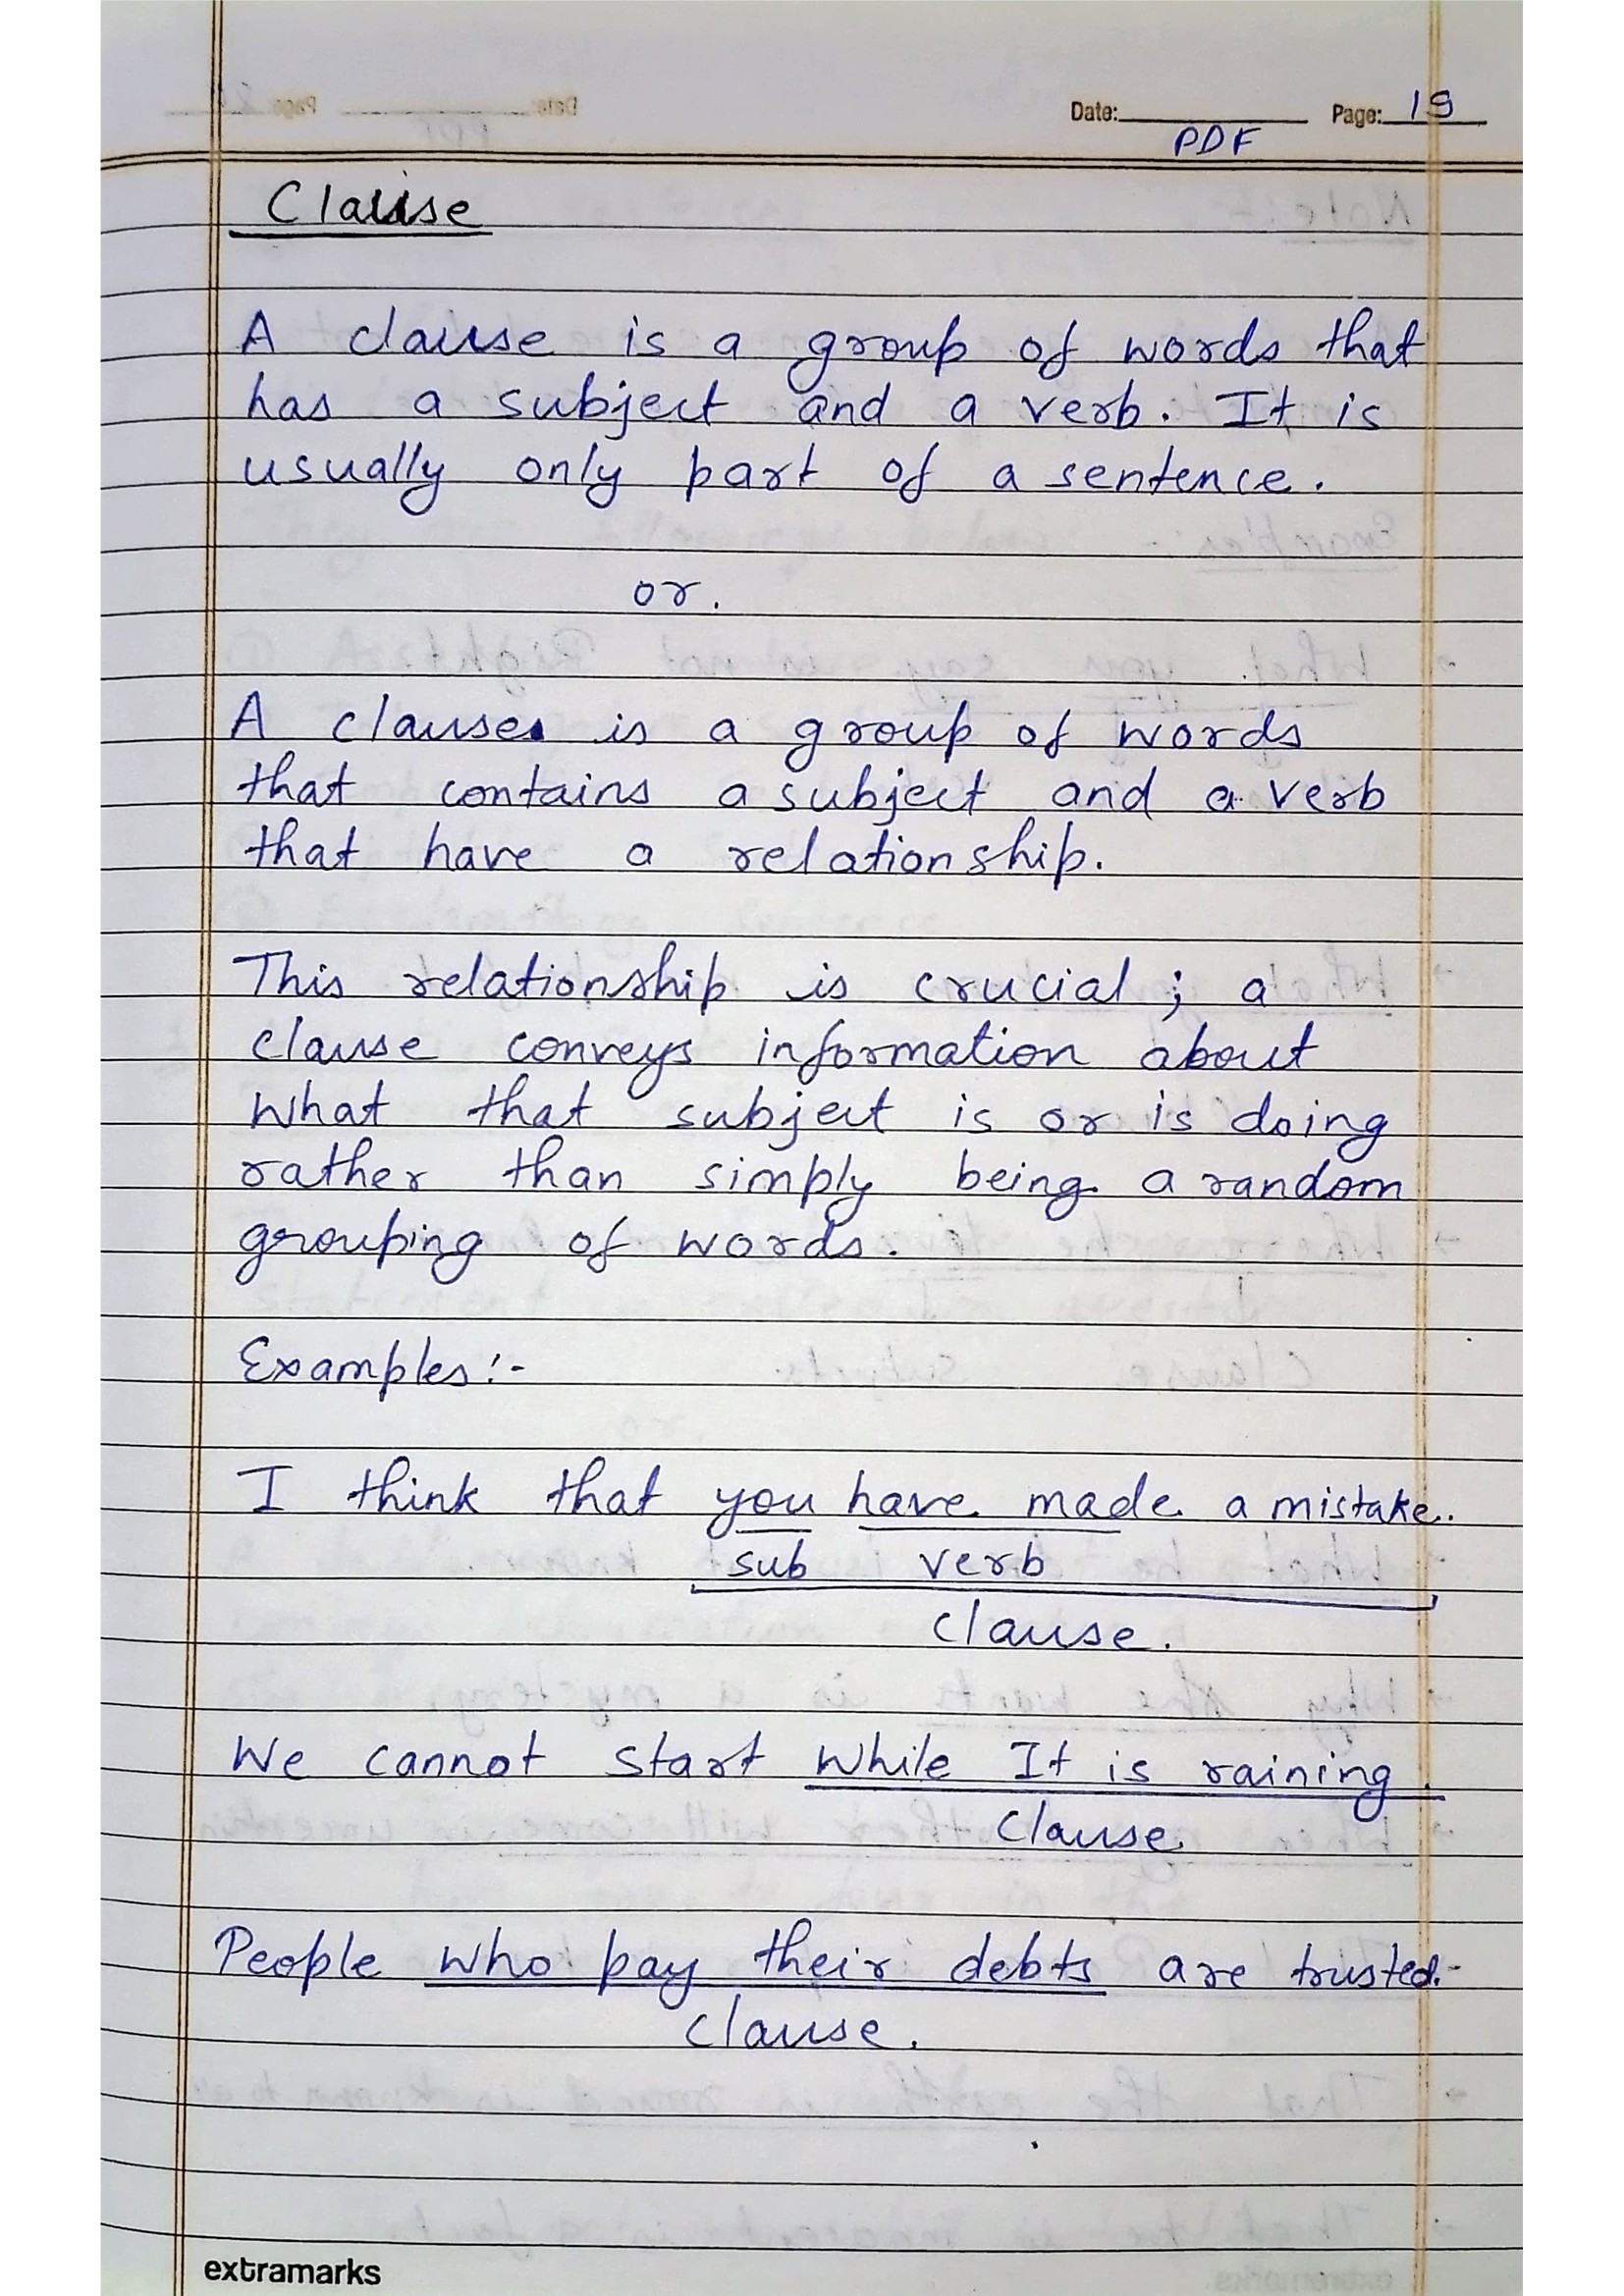 Date: Page: 19
PDF
Clause
A clause is a group of words that
has a subject and a verb. It is
usually only part of a sentence.
or.
A clause is a group of words
that contains a subject and a verb
that have a relationship.
This relationship is crucial ; a
clause conveys information about
what that subject is or is doing
rather than simply being a random
grouping of words.
Examples:-
I think that you have made a mistake.
sub verb
clause.
We cannot start while It is raining.
Clause.
People who pay their debts are trusted.-
clause.
extramarks